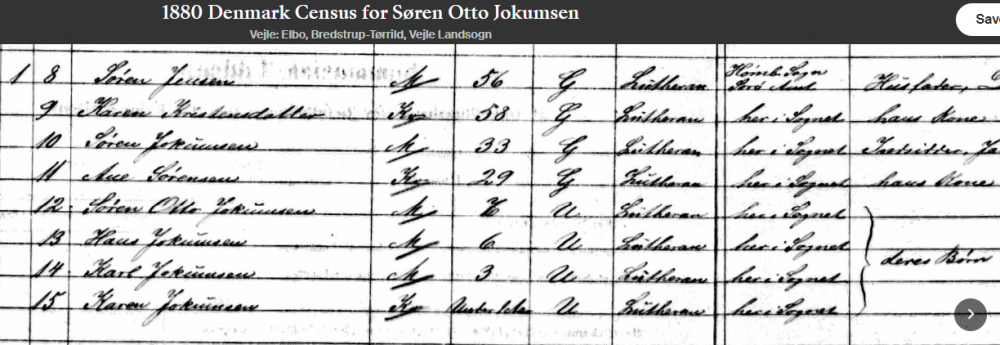 1880 Denmark Census for Søren Otto Jokumsen
Save
Vejle: Elbo, Bredstrup-Tørrild, Vejle Landsogn
1 8 Søren Jensen M 56 G Lutheran Sogn Amt Husfader,
9 Karen Kristensdatter Kv 58 G Lutheran her i Sognet hans Kone
10 Søren Jokumsen M 33 G Lutheran her i Sognet Indsidder,
11 Ane Sørensen Kv 29 G Lutheran her i Sognet hans Kone
12 Søren Otto Jokumsen M U Lutheran her i Sognet
13 Hans Jokumsen M 6 U Lutheran her i Sognet
deres Børn
14 Karl Jokumsen M 3 U Lutheran her i Sognet
15 Karen Jokumsen Kv Under 1 Aar U Lutheran her i Sognet